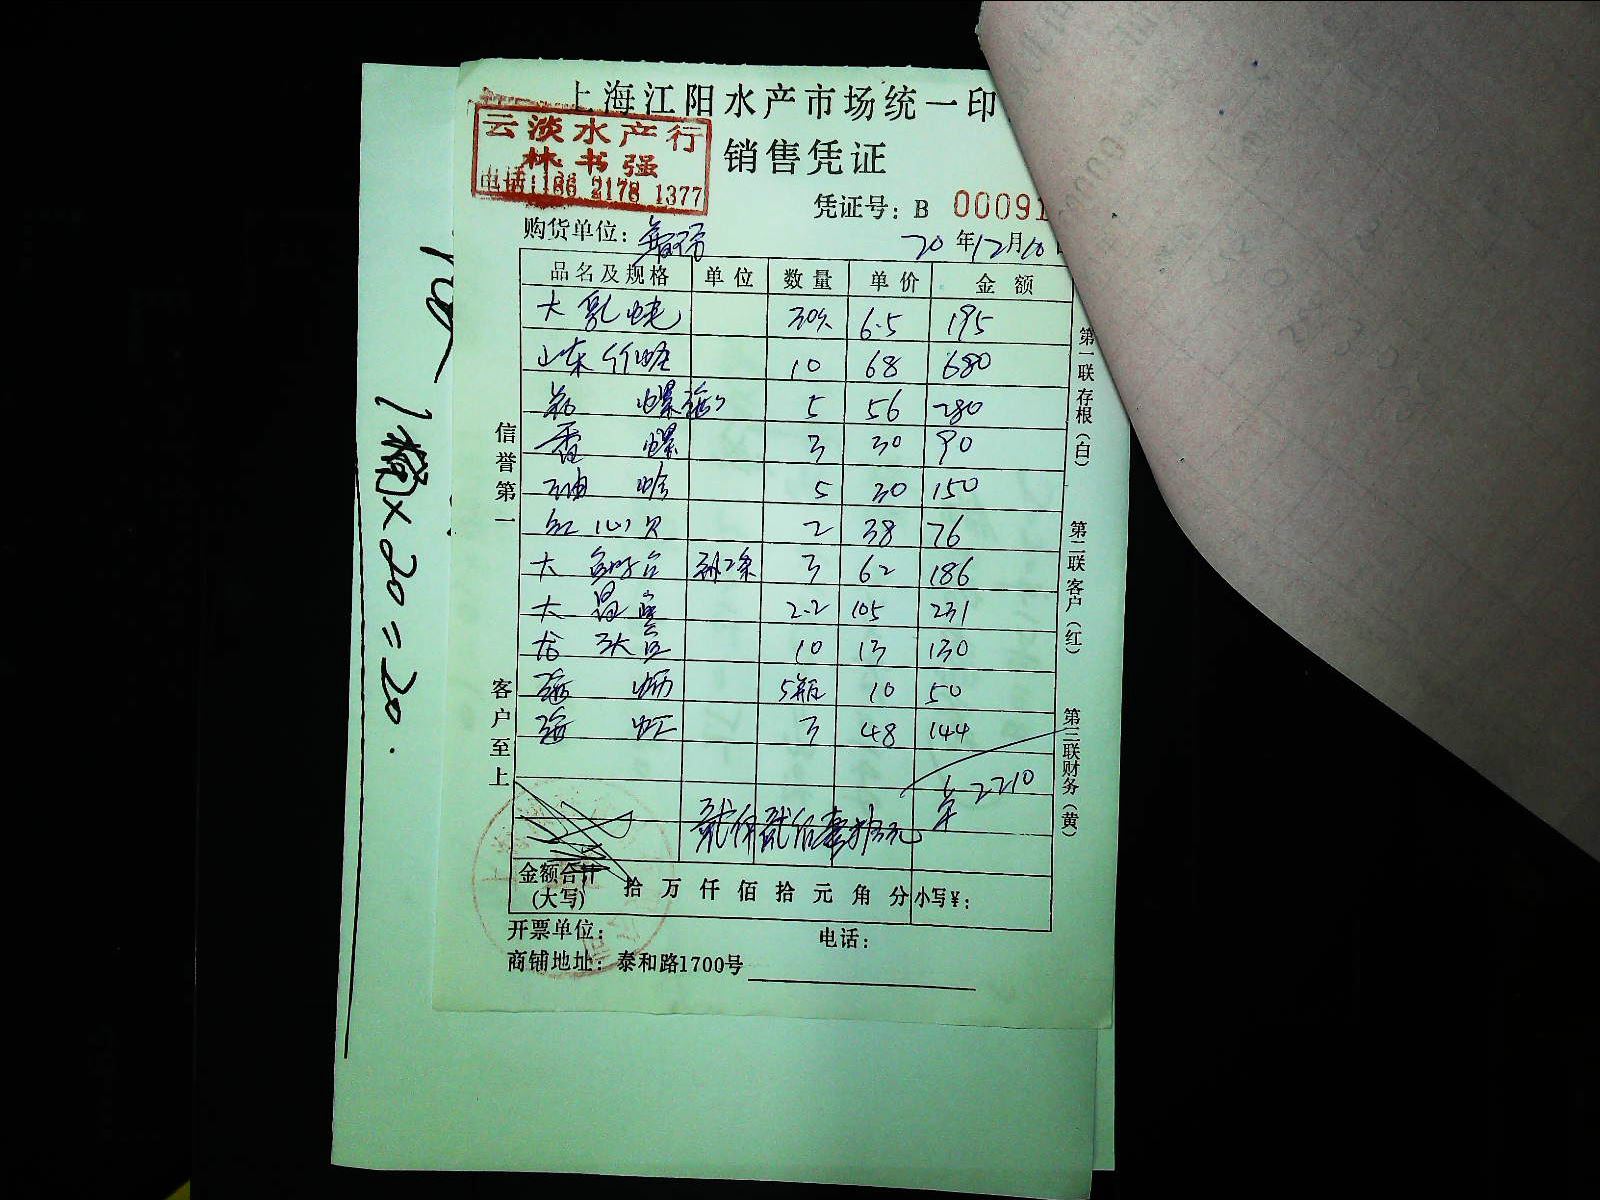 上海江阳水产市场统一印
云淡水产行
林书强
电话:186 2178 1377
销售凭证
凭证号: B 00091
购货单位:
20年12月10
品名及规格 单位 数量 单价 金额
大乳 30 6.5 195
山东竹蛏 10 68 680
螺 5 56 280
香螺 3 30 90
油蛤 5 30 150
红心贝 2 38 76
大 3 62 186
大 2.2 105 231
龙头 10 13 130
海蛎 5瓶 10 50
海虹 3 48 144
2210
贰仟贰佰壹拾元
金额合计
(大写) 拾万仟佰拾元角分 小写¥:
开票单位: 电话:
商铺地址: 泰和路1700号
信誉第一
客户至上
第一联存根(白)
第二联客户(红)
第三联财务(黄)
1箱×20=20.